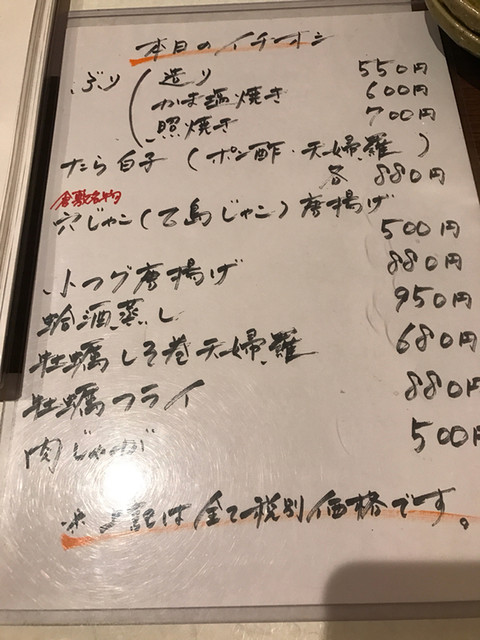 本日のイチオシ
ぶり（造り 550円
かま塩焼き 600円
照焼き 700円
たら白子（ポン酢・天婦羅）
各 880円
倉敷名物
穴じゃこ（乙島じゃこ）唐揚げ
500円
小フグ唐揚げ 880円
蛤酒蒸し 950円
牡蠣しそ巻天婦羅 680円
牡蠣フライ 880円
肉じゃが 500円
※上記は全て税別価格です。